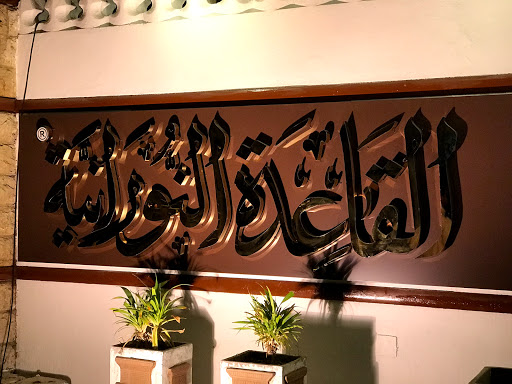 القاعدة النورانية
®